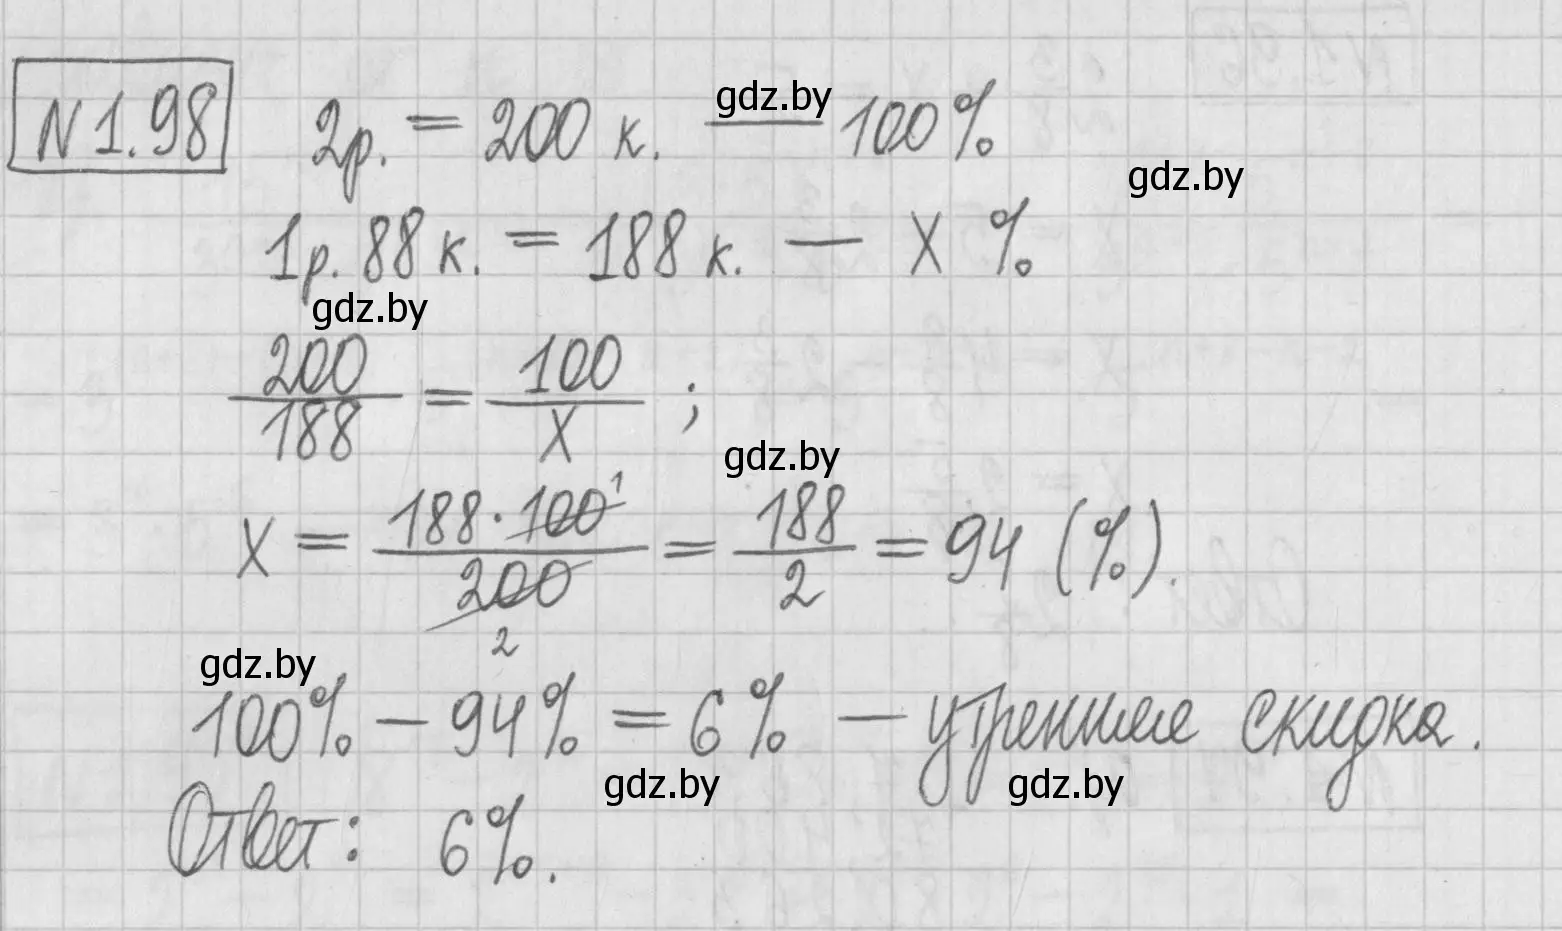 N 1.98 2р. = 200 к. — 100%
gdz.by
gdz.by
1р. 88 к. = 188 к. — X %
gdz.by
200/188 = 100/X ;
gdz.by
X = 188·100 1/200 2 = 188/2 = 94 (%).
gdz.by
100% – 94% = 6% — утренняя скидка.
gdz.by gdz.by
Ответ: 6%.